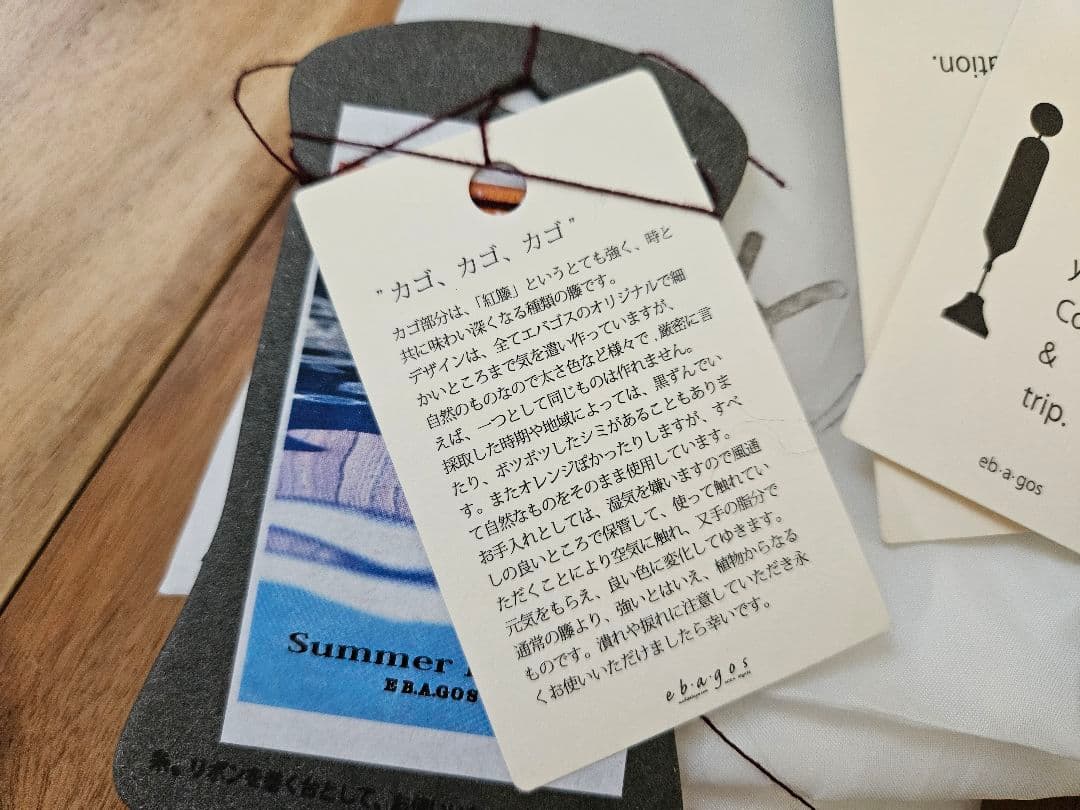 "カゴ、カゴ、カゴ"
カゴ部分は、「紅籐」というとても強く、時と
共に味わい深くなる種類の籐です。
デザインは、全てエバゴスのオリジナルで細
かいところまで気を遣い作っていますが、
自然のものなので太さ色など様々で、厳密に言
えば、一つとして同じものは作れません。
採取した時期や地域によっては、黒ずんでい
たり、ポツポツしたシミがあることもありま
す。またオレンジぽかったりしますが、すべ
て自然なものをそのまま使用しています。
お手入れとしては、湿気を嫌いますので風通
しの良いところで保管して、使って触れてい
ただくことにより空気に触れ、又手の脂分で
元気をもらえ、良い色に変化してゆきます。
通常の籐より、強いとはいえ、植物からなる
ものです。潰れや捩れに注意していただき永
くお使いいただけましたら幸いです。
eb·a·gos
Summer
EB.A.GOS
糸、リボンを巻く台として、お使い
ation.
y
Co
&
trip.
eb·a·gos